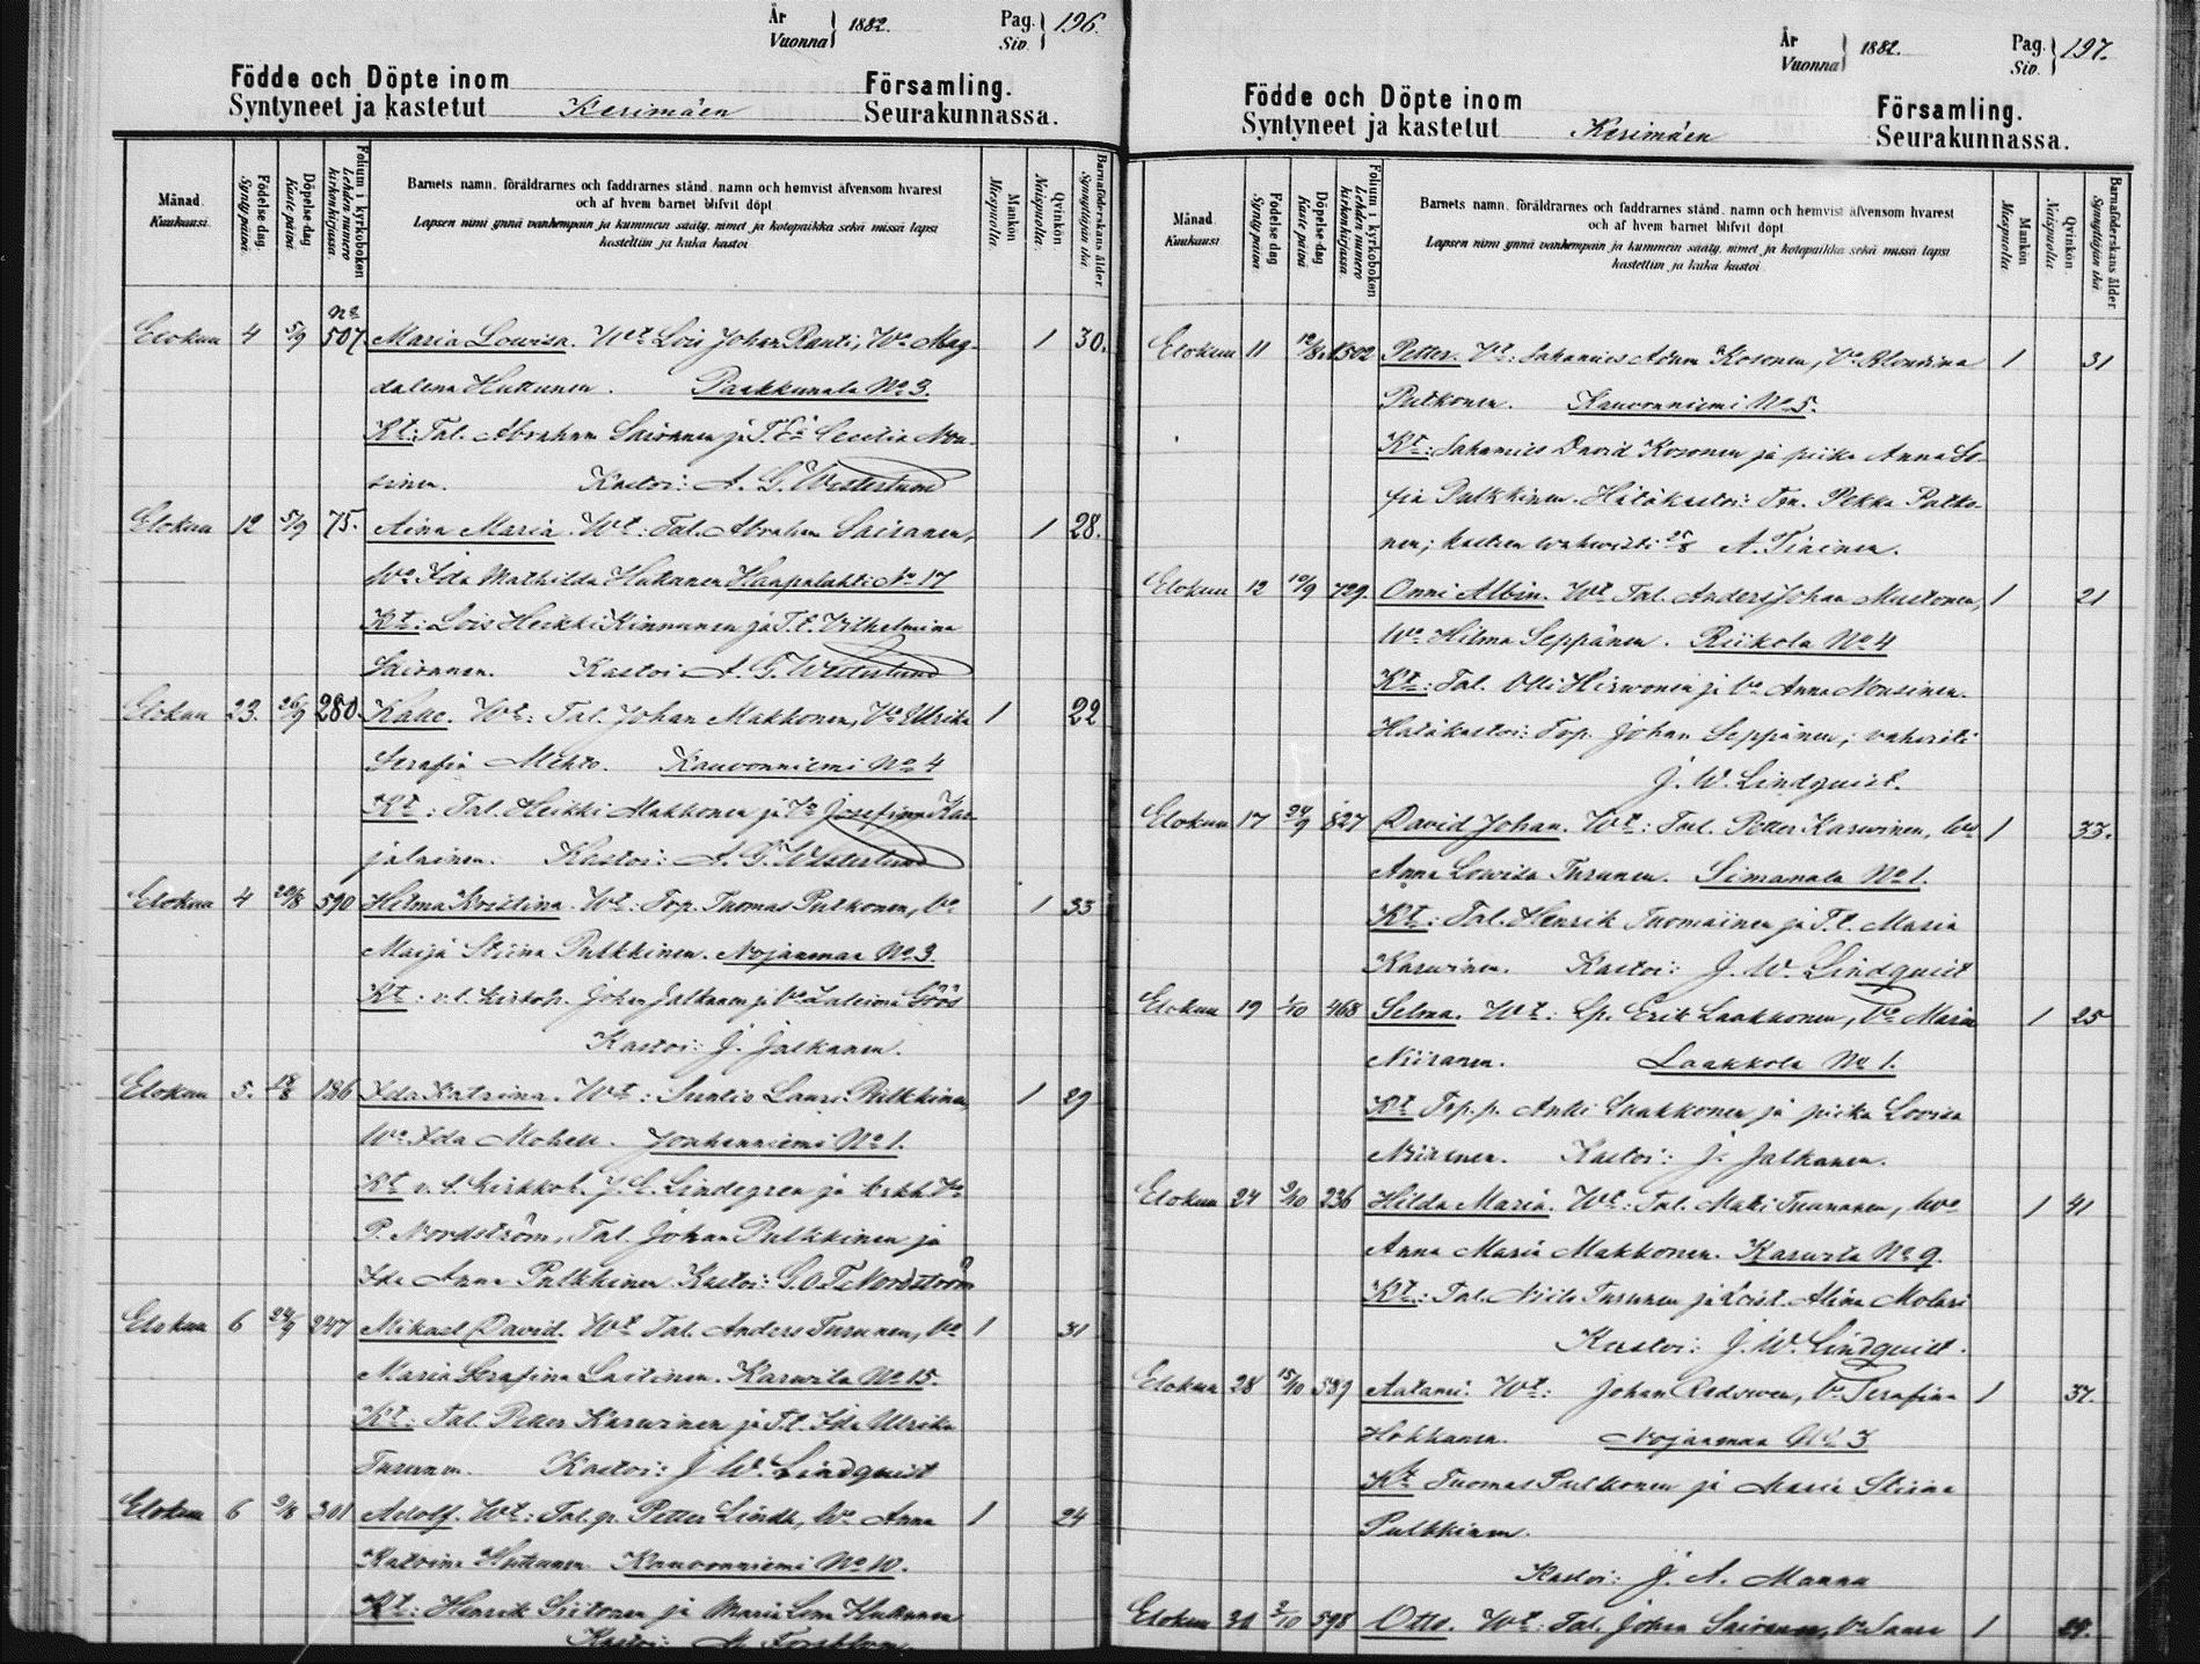 År
Vuonna } 1882.
Pag.
Siv. } 196.
Födde och Döpte inom Församling.
Syntyneet ja kastetut Kerimäen Seurakunnassa.
Månad. Kuukausi.
Födelse dag Synty päivä.
Döpelse-dag Kaste päivä
Folium i kyrkoboken Lehden numero kirkonkirjassa.
Barnets namn, föräldrarnes och faddrarnes stånd, namn och hemvist äfvensom hvarest
och af hvem barnet blifvit döpt
Lapsen nimi ynnä vanhempain ja kummein sääty, nimet ja kotopaikka sekä missä lapsi
kastettiin ja kuka kastoi
Mankön Miespuolia.
Qvinkön Naispuolia.
Barnaföderskans ålder. Synnyttäjän ikä
No
Elokuu 4 5/9 507 Maria Lowisa. Wt Lois Johan Rauti, Wo Mag- 1 30.
dalena Huttunen. Paakkunala No 3.
Kt: Tal. Abraham Sairanen ja T. Cecilia Nou-
sinen. Kastoi: A. G. Westerlund
Elokuu 12 5/9 75. Aina Maria. Wt: Tal. Abraham Sairanen, 1 28.
Wo Ida Mathilda Hukanen Haapalahti No 17
Kt: Lois Heikki Kinnunen ja T.t. Vilhelmina
Sairanen. Kastoi A. G. Westerlund
Elokuu 23. 26/9 280. Kalle. Wt: Tal. Johan Makkonen, Vo Ulrika 1 22
Serafia Mehto. Kauvonniemi No 4
Kt: Tal. Heikki Makkonen ja Vo Josefiina Kar-
jalainen. Kastoi: A. G. Westerlund
Elokuu 4 20/8 590 Helma Kristina. Wt: Top. Tuomas Pulkonen, Vo 1 33
Maija Stiina Pulkkinen. Nojanmaa No 3.
Kt: v.t. kirkoh. Johan Jalkanen ja Vo Göös
Kastoi: J. Jalkanen.
Elokuu 5. 18/8 186 Ida Katriina. Wt: Suntio Lauri Pulkkinen, 1 29
Wo Ida Mohell. Jouhenniemi No 1.
Kt v.t. kirkkoh. J. L. Lindegren ja kirkh. Vo
P. Nordström, Tal. Johan Pulkkinen ja
Ida Anna Pulkkinen Kastoi: G.O.T. Nordström
Elokuu 6 24/9 247 Mikael David. Wt Tal. Anders Turunen, Vo 1 31
Maria Serafina Laitinen. Karwila No 15.
Kt: Tal. Petter Karwinen ja T.t. Ida Ulrika
Turunen. Kastoi: J. W. Lindquist
Elokuu 6 9/8 301 Adolf. Wt: Tal.p. Petter Lindh, Wo Anna 1 24
Katrina Huttunen Kauvonniemi No 10.
Kt: Henrik Siitonen ja Maria Lena Hukanen
Kastoi: M. Forsblom.
År
Vuonna } 1882.
Pag.
Siv. } 197.
Födde och Döpte inom Församling.
Syntyneet ja kastetut Kerimäen Seurakunnassa.
Månad Kuukausi
Födelse dag Synty päivä
Döpelse dag Kaste päivä
Folium i kyrkoboken Lehden numero kirkonkirjassa
Barnets namn, föräldrarnes och faddrarnes stånd, namn och hemvist äfvensom hvarest
och af hvem barnet blifvit döpt
Lapsen nimi ynnä vanhempain ja kummein sääty, nimet ja kotopaikka sekä missä lapsi
kastettiin ja kuka kastoi
Mankön Miespuolia
Qvinkön Naispuolia
Barnaföderskans ålder Synnyttäjän ikä
Elokuu 11 12/8 1502 Petter. Vt: Sahamies Adam Kosonen, Vo Blondina 1 31
Pulkonen. Kauvonniemi No 5.
Kt: Sahamies David Kosonen ja piika Anna So-
fia Pulkkinen. Hätäkastoi: Pekka Pulko-
nen; kasteen wahwisti 25/8 A. Tiainen.
Elokuu 12 10/9 729. Onni Albin. Wt Tal. Anders Johan Mustonen, 1 21
Wo Hilma Seppänen. Riikola No 4
Kt: Tal. Olli Hirwonen ja Vo Anna Nousinen.
Hätäkastoi: Top. Johan Seppänen; vahvisti
J. W. Lindquist.
Elokuu 17 24/9 827 David Johan. Wt: Tal. Petter Karwinen, Wo 1 33.
Anna Lowisa Turunen. Simanala No 1.
Kt: Tal. Henrik Tuomainen ja T.t. Maria
Karwinen. Kastoi: J. W. Lindquist
Elokuu 19 1/10 468 Selma. Wt: Lp. Erik Laakkonen, Vo Maria 1 25
Niiranen. Laakkola No 1.
Kt Top.p. Antti Laakkonen ja piika Lovisa
Niiranen. Kastoi: J. Jalkanen.
Elokuu 24 9/10 236 Hilda Maria. Wt: Tal. Matti Tuunanen, Wo 1 41
Anna Maria Makkonen. Karwila No 9.
Kt: Tal. Niilo Turunen ja Loist. Alina Molari
Kastoi: J. W. Lindquist.
Elokuu 28 15/10 589 Aatami. Wt: Johan Redsven, Vo Serafina 1 37.
Hokkanen. Nojanmaa No 3
Kt Tuomas Pulkonen ja Maria Stiina
Pulkkinen.
Kastoi: J. A. Manna
Elokuu 30 2/10 598 Otto. Wt: Tal. Johan Sairanen, Vo Sanna 1 29.